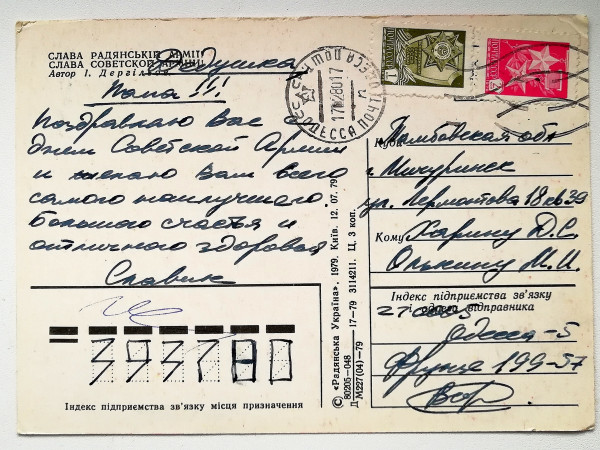 СЛАВА РАДЯНСЬКІЙ АРМІЇ!
СЛАВА СОВЕТСКОЙ АРМИИ!
Автор І. Дергільов
Дедушка,
Папа!!!
Поздравляю Вас с
днем Советской Армии
и желаю Вам всего
самого наилучшего,
большого счастья и
отличного здоровья
Славик
393740
Індекс підприємства зв'язку місця призначення
© «Радянська Україна», 1979. Київ. 12. 07. 79
80205-048
М227(04)-79
17-79 3114211. Ц. 3 коп.
ОДЕССА ПОЧТАМТ
Куди Тамбовская обл
г. Мичуринск
ул. Лермонтова 18 кв 39
Кому Харину Д.С.
Олькину М.И.
Індекс підприємства зв'язку
і адреса відправника
270005
Одесса-5
Фрунзе 199-57